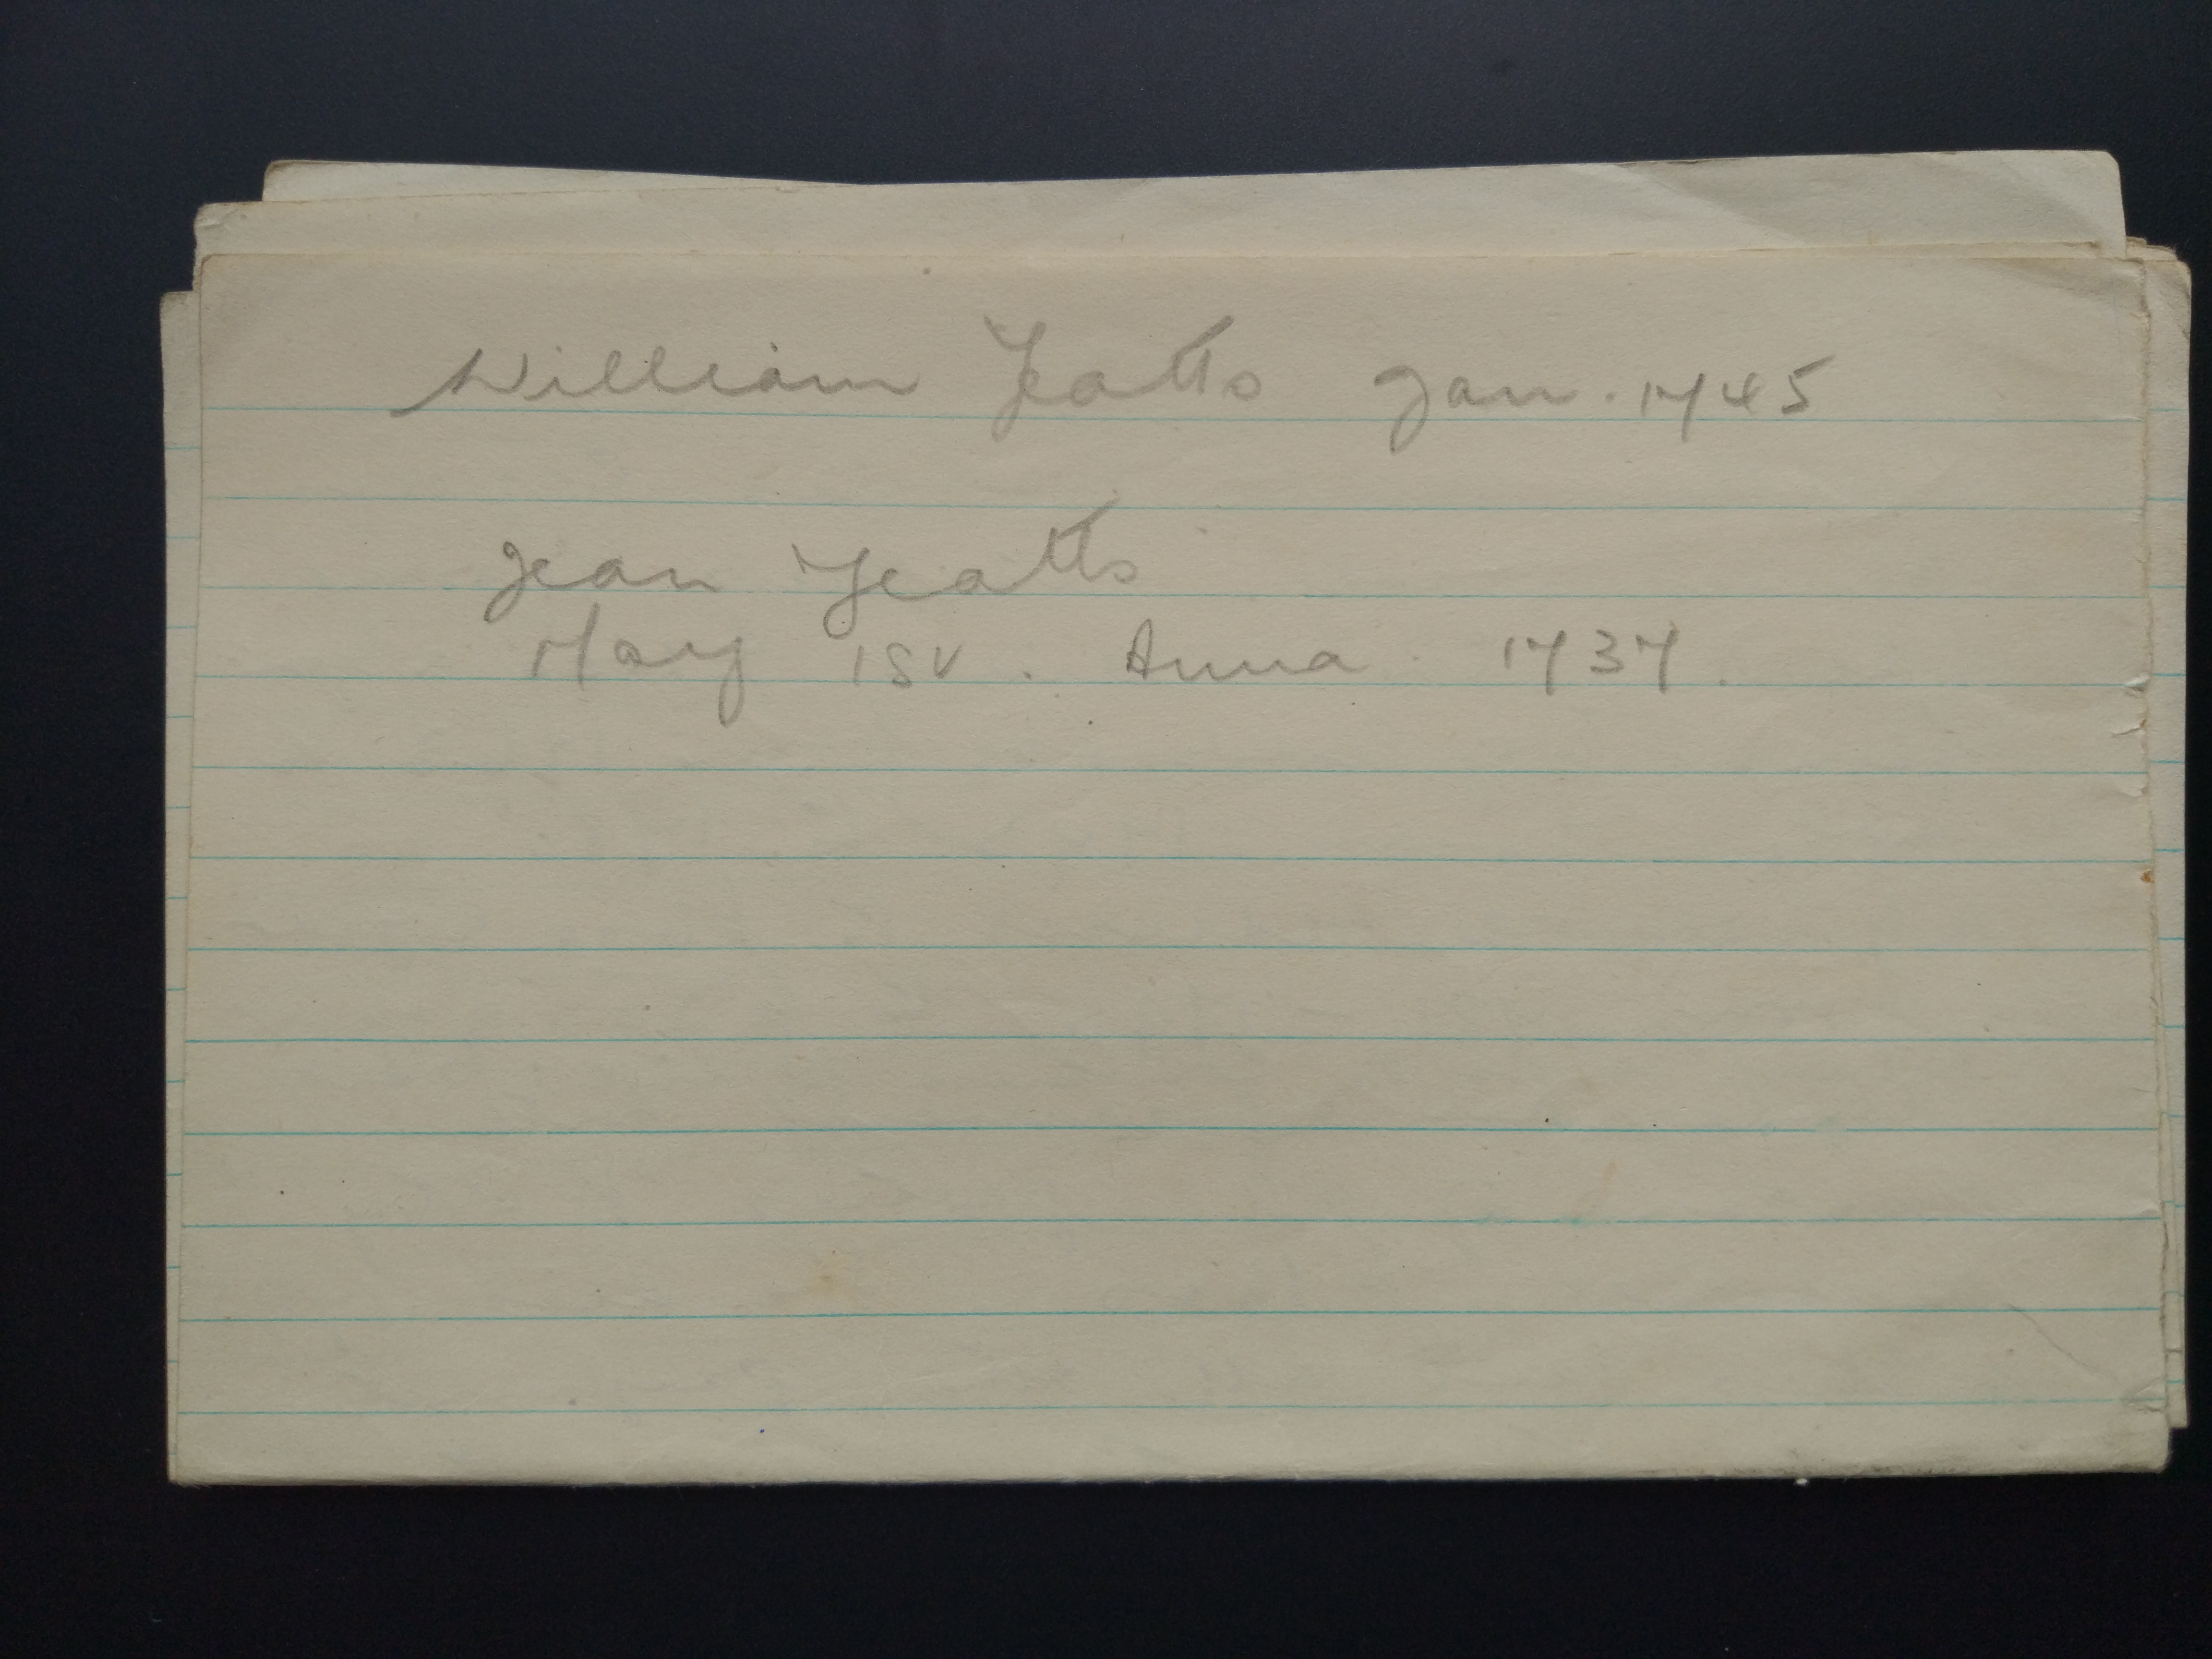 William Yeatts Jan. 1745
Jean Yeatts
May 1st. Anna 1737.